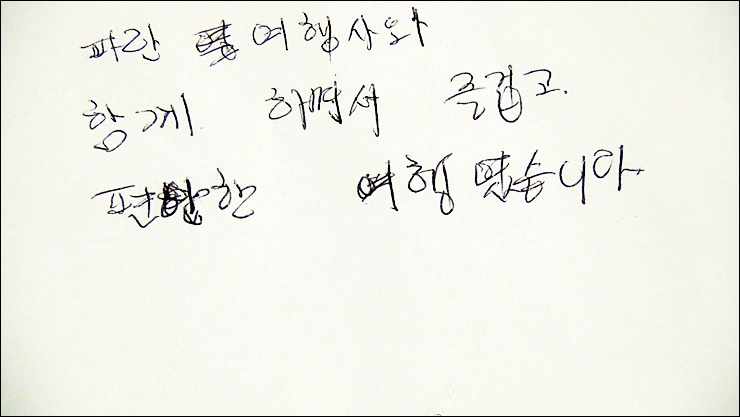 파란 여행사와
함께 하면서 즐겁고.
편안한 여행 였습니다